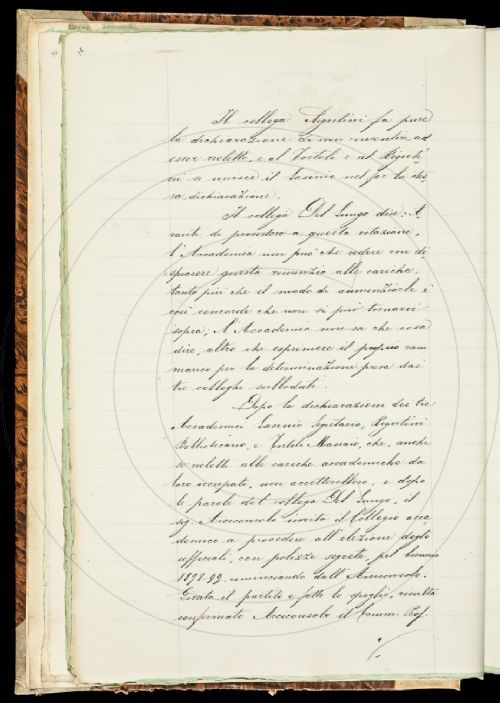 Il collega Rigutini fa pure
la dichiarazione di non consentire ad
esser rieletto, e al Tortoli e al Riguti-
ni si unisce il Casinio nel far la stes-
sa dichiarazione.
Il collega Del Lungo dice: A-
vanti di procedere a questa votazione,
l'Accademia non può che vedere con di-
spiacere questa rinunzia alle cariche,
tanto più che il modo di annunziarle è
così concorde che non si può tornarvi
sopra; l'Accademia non sa che cosa
dire, altro che esprimere il proprio ram-
marico per la determinazione presa dai
tre colleghi sullodati.
Dopo la dichiarazioni dei tre
Accademici Casinio Segretario, Rigutini
Bibliotecario, e Tortoli Massaio, che, anche
se rieletti alle cariche accademiche da
loro occupate, non accetterebbero, e dopo
le parole del collega Del Lungo, il
sig. Arciconsolo invita il Collegio acca-
demico a procedere all'elezione degli
uffiziali, con polizze segrete, pel biennio
1898-99, cominciando dall'Arciconsolo.
Girato il partito e fatto lo spoglio, resulta
confermato Arciconsolo il Comm. Prof.